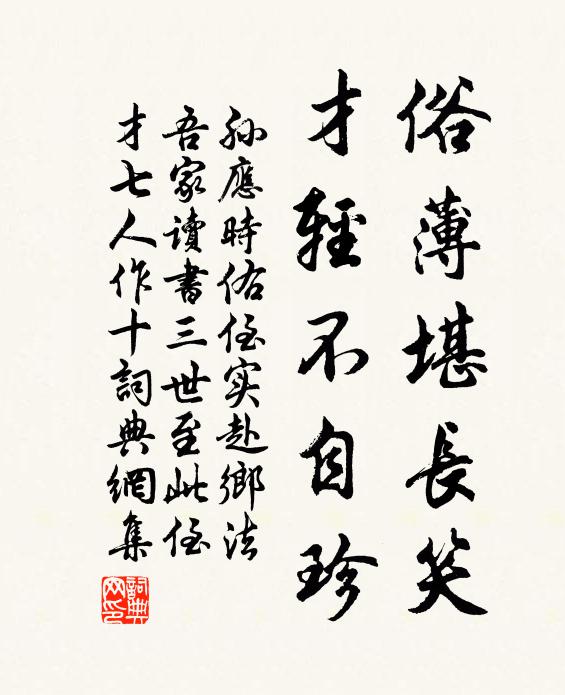 俗薄堪長笑
才輕不自珍
孫應時佑侄实赴鄉法
吾家讀書三世至此侄
才七人作十詞典網集
詞典網印